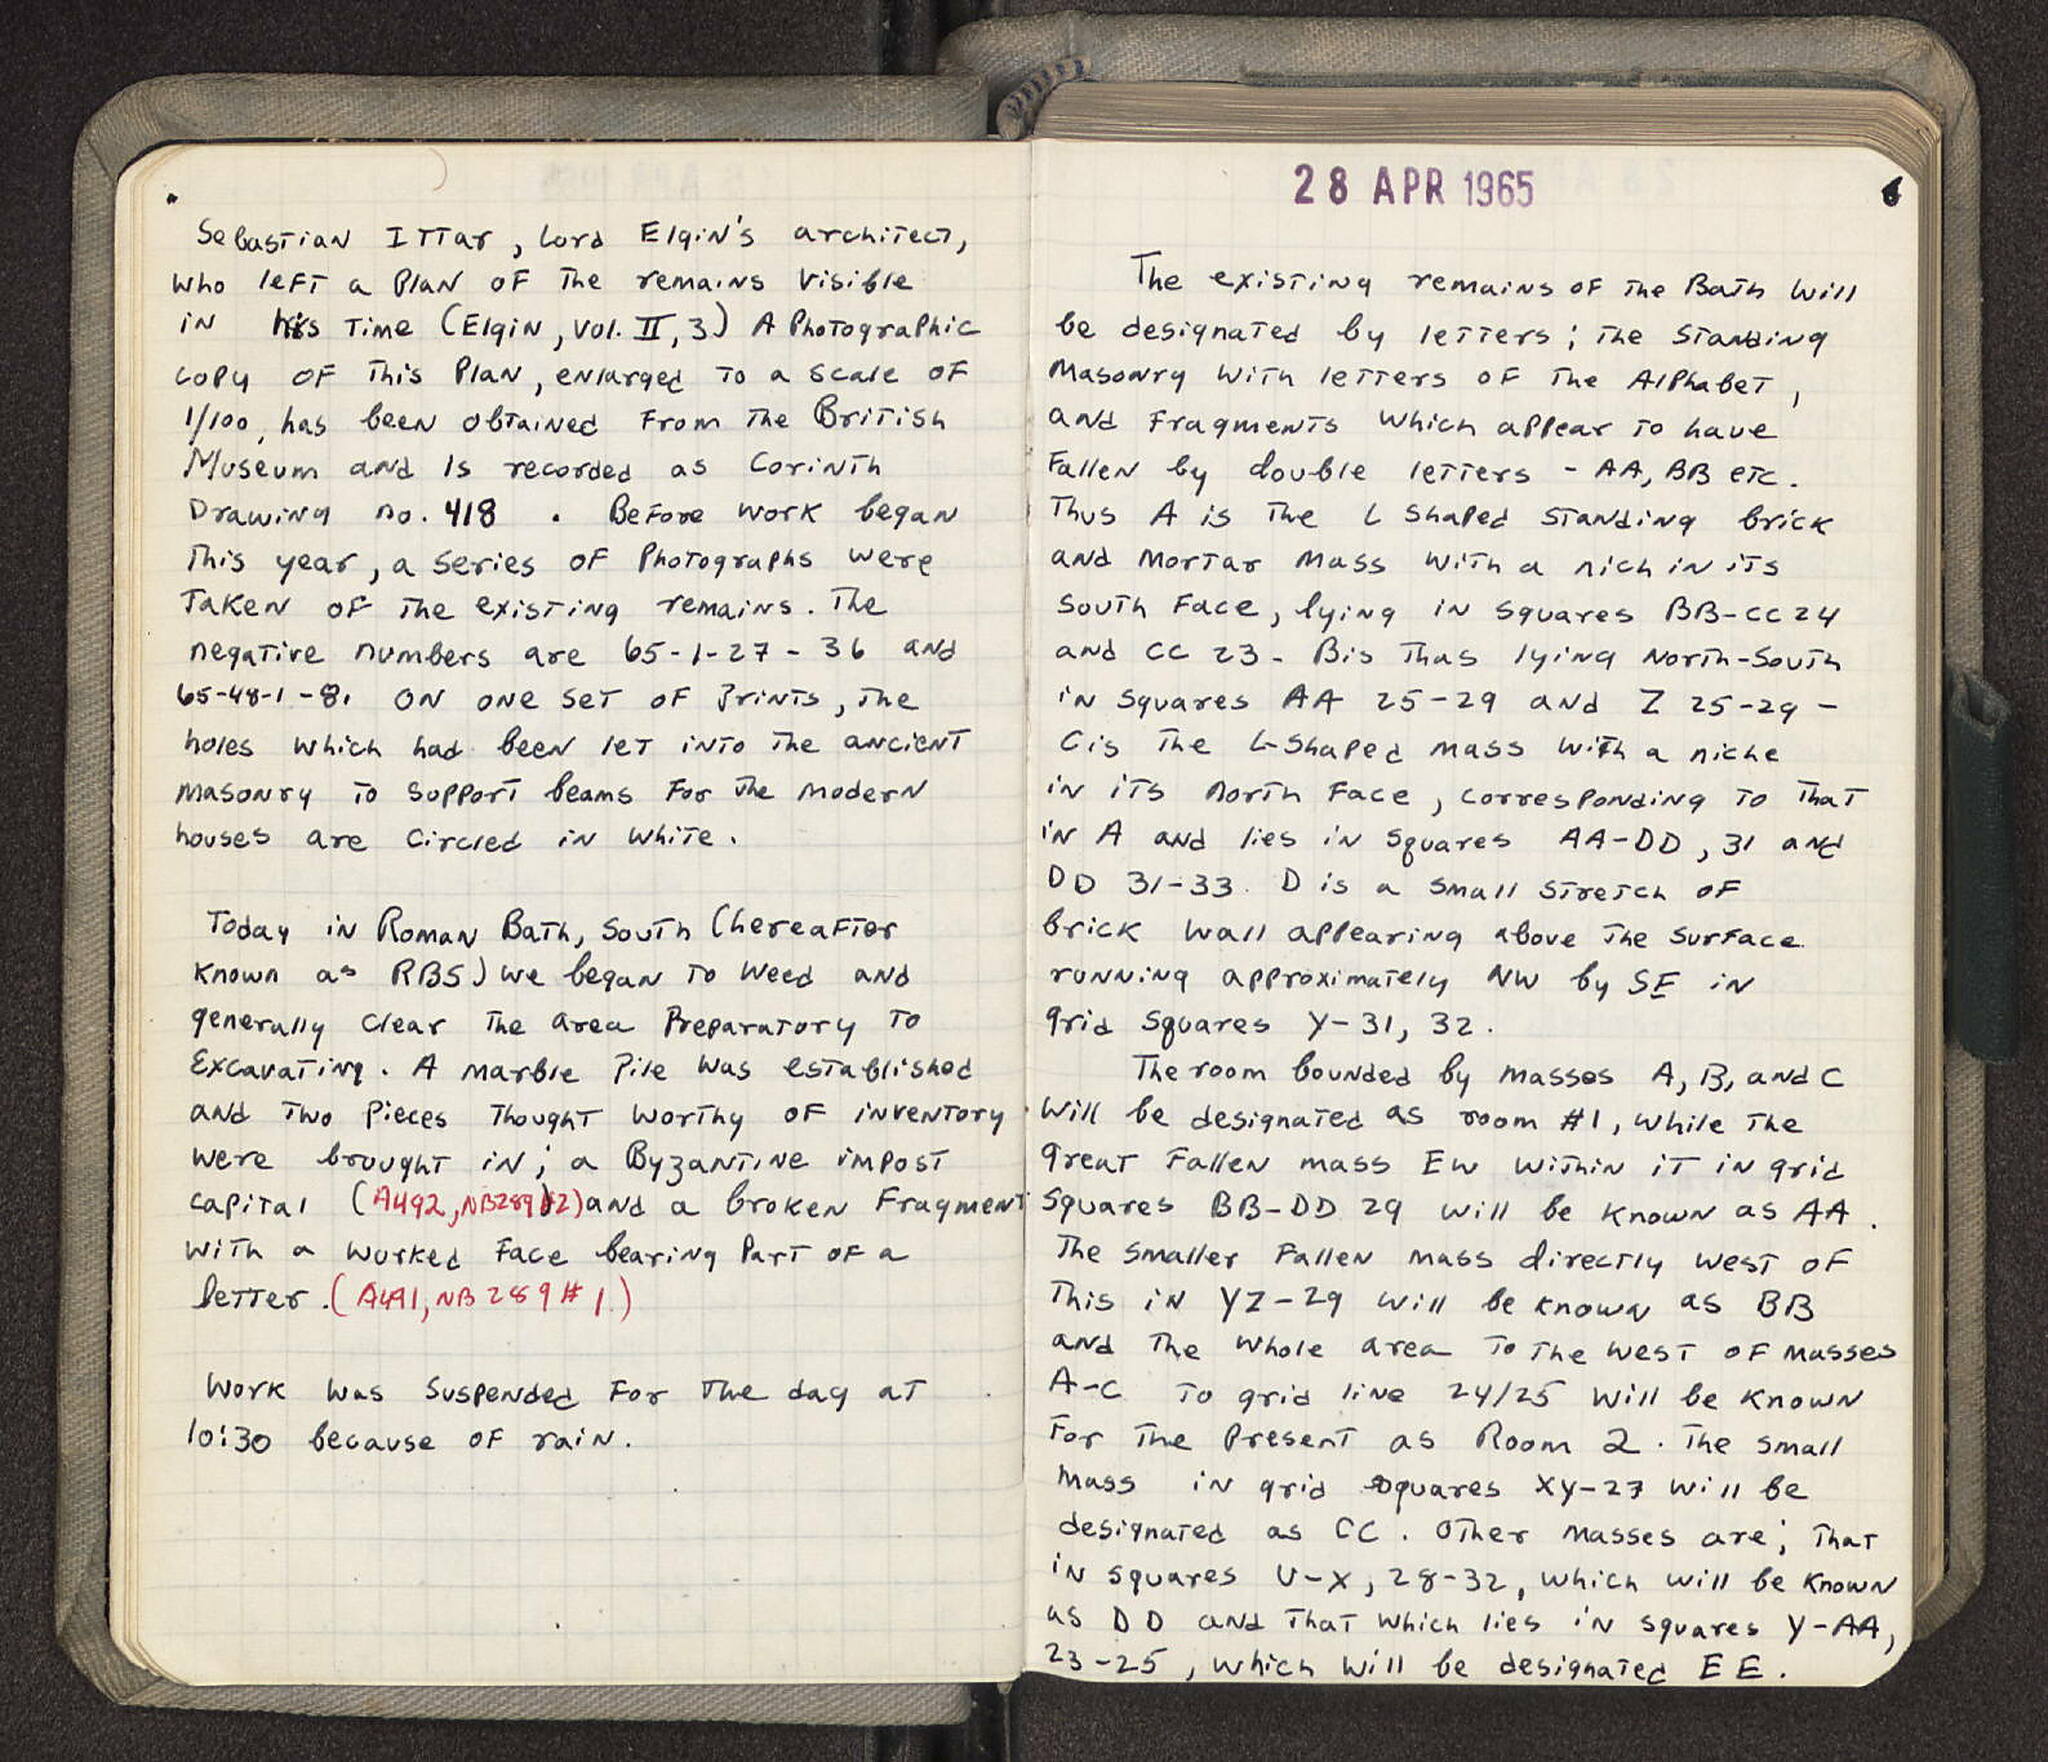 Sebastian Ittar, Lord Elgin's architect,
who left a plan of the remains visible
in his time (Elgin, Vol. II, 3) A photographic
copy of this plan, enlarged to a scale of
1/100, has been obtained from the British
Museum and is recorded as Corinth
Drawing no. 418 . Before work began
this year, a series of photographs were
taken of the existing remains. The
negative numbers are 65-1-27-36 and
65-48-1-8. On one set of prints, the
holes which had been let into the ancient
masonry to support beams for the modern
houses are circled in white.
Today in Roman Bath, South (hereafter
known as RBS) we began to weed and
generally clear the area preparatory to
excavating. A marble pile was established
and two pieces thought worthy of inventory
were brought in; a Byzantine impost
capital (A492, NB289 #2) and a broken fragment
with a worked face bearing part of a
letter. (A491, NB 289 # 1.)
Work was suspended for the day at
10:30 because of rain.
28 APR 1965
6
The existing remains of the Bath will
be designated by letters; the standing
masonry with letters of the Alphabet,
and fragments which appear to have
fallen by double letters - AA, BB etc.
Thus A is the L shaped standing brick
and mortar mass with a nich in its
south face, lying in squares BB-CC 24
and CC 23. B is thas lying North-South
in squares AA 25-29 and Z 25-29 -
C is the L-shaped mass with a niche
in its north face, corresponding to that
in A and lies in squares AA-DD, 31 and
DD 31-33. D is a small stretch of
brick wall appearing above the surface
running approximately NW by SE in
grid squares Y-31, 32.
The room bounded by masses A, B, and C
will be designated as room #1, while the
great fallen mass EW within it in grid
squares BB-DD 29 will be known as AA.
The smaller fallen mass directly west of
this in YZ-29 will be known as BB
and the whole area to the west of masses
A-C to grid line 24/25 will be known
for the present as Room 2. The small
mass in grid squares XY-27 will be
designated as CC. Other masses are; that
in squares U-X, 28-32, which will be known
as DD and that which lies in squares Y-AA,
23-25, which will be designated EE.